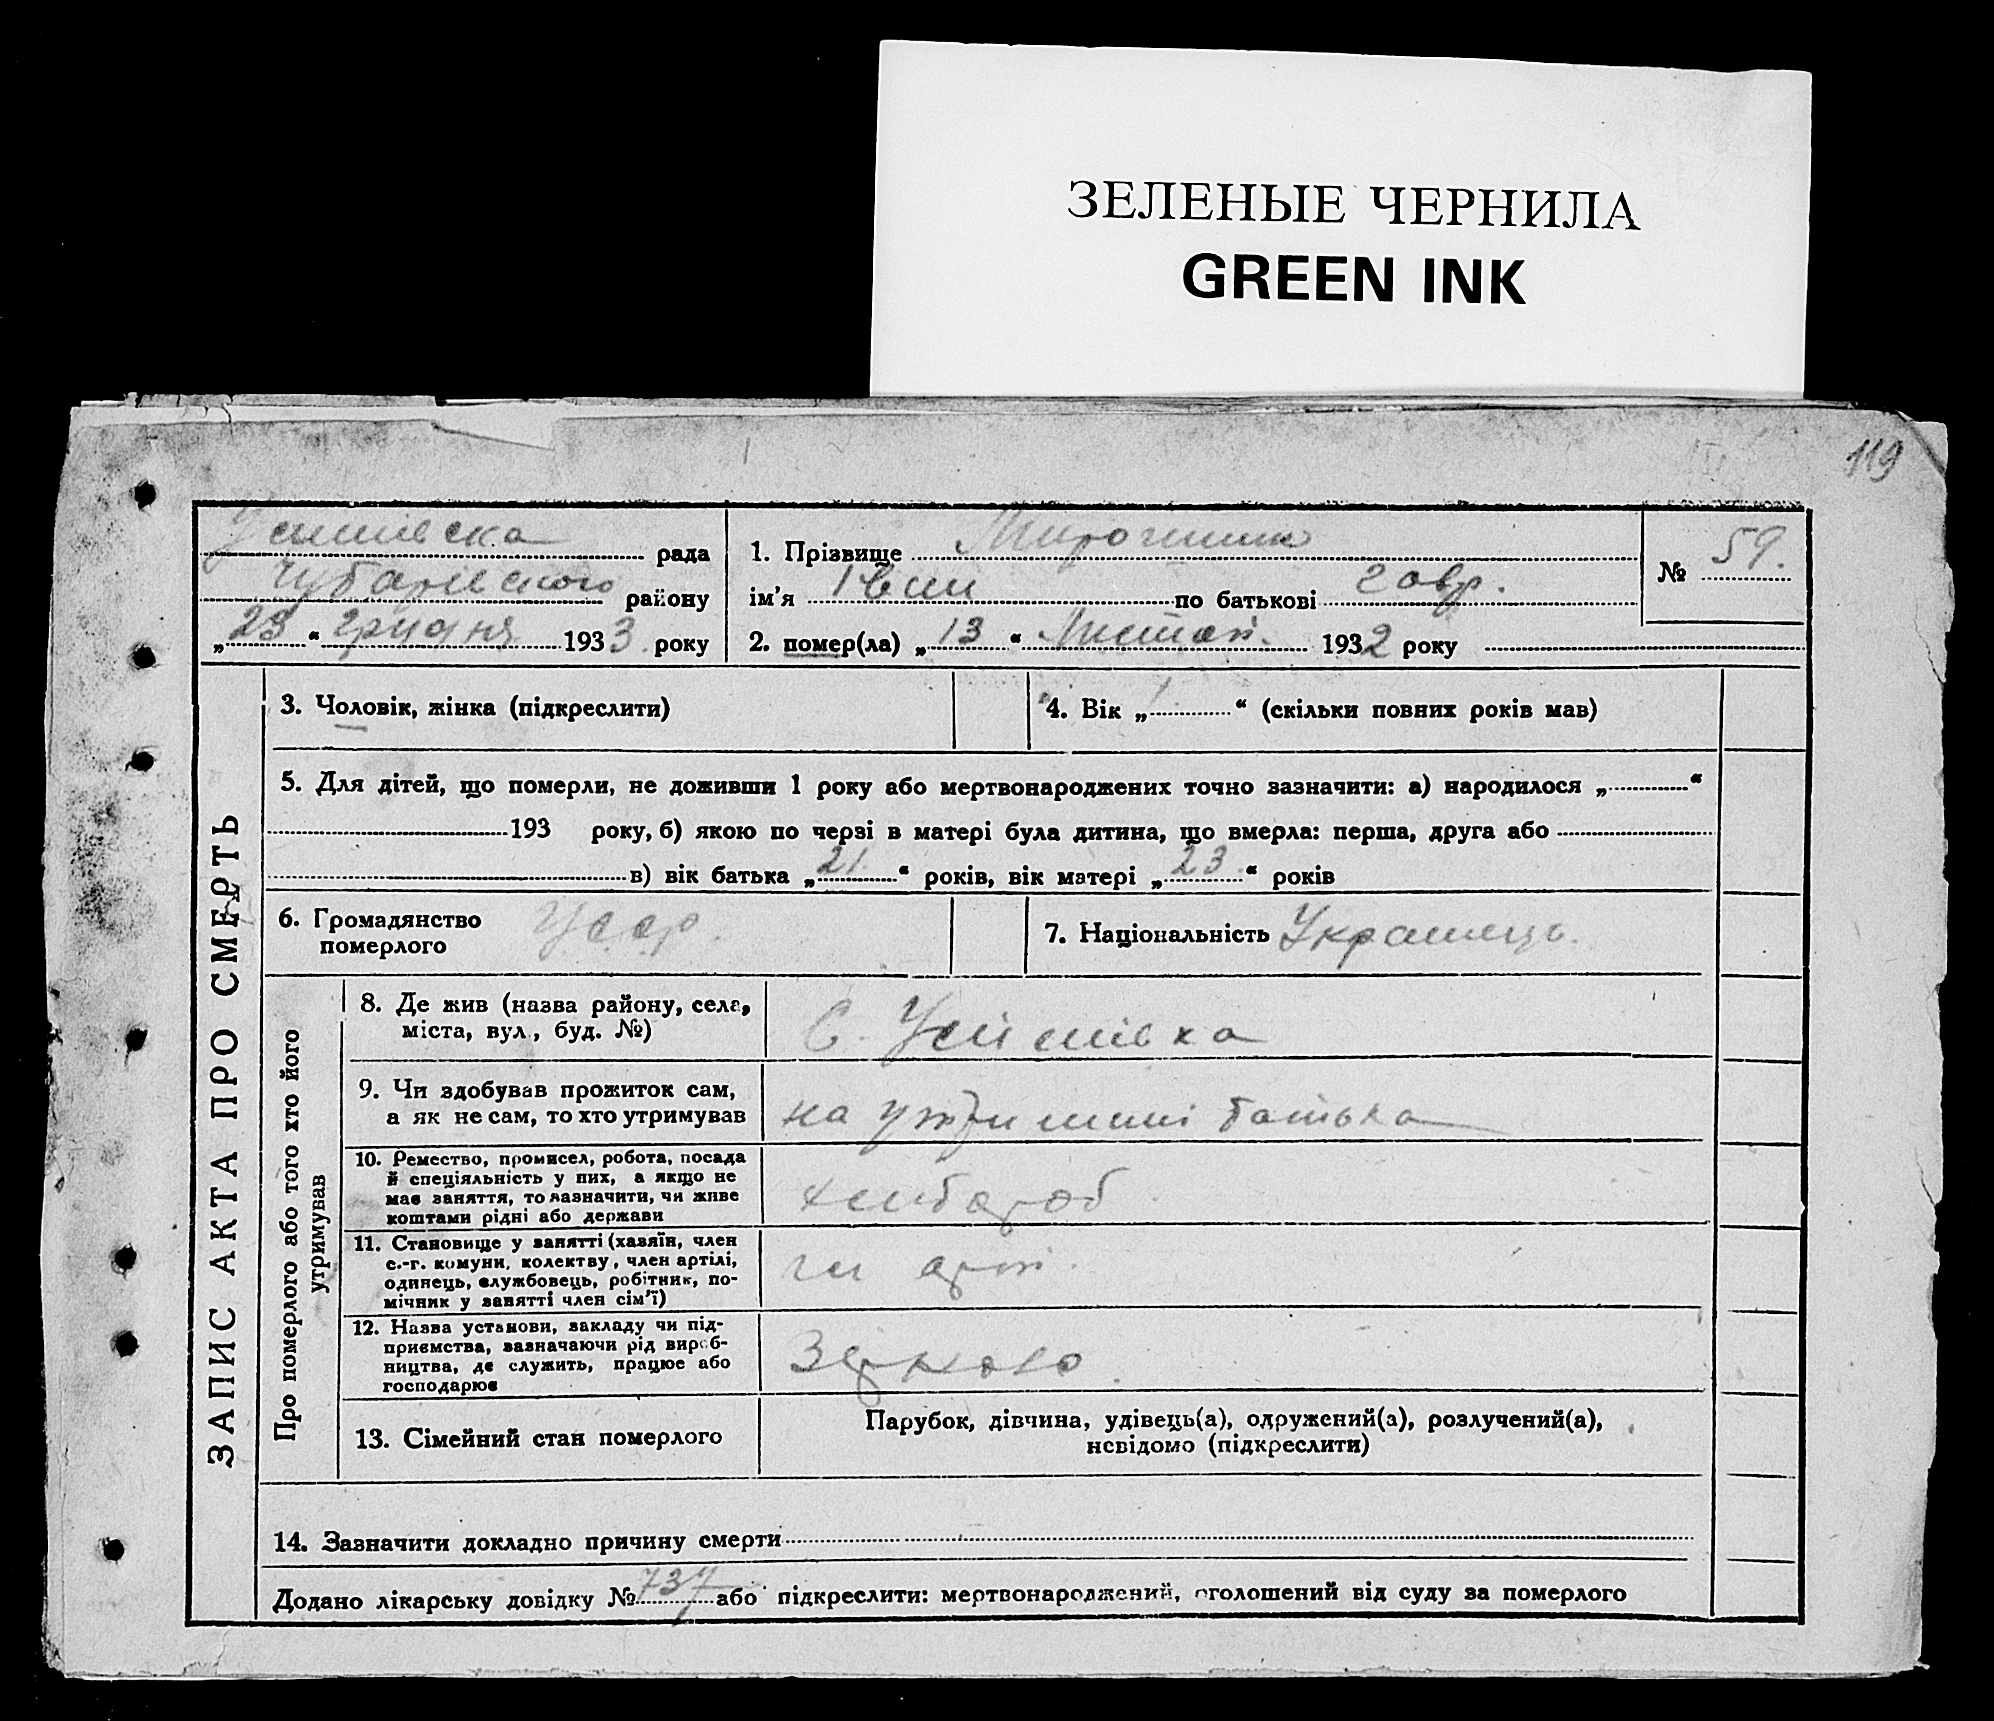 ЗЕЛЕНЫЕ ЧЕРНИЛА
GREEN INK
119
Успенівска рада
Чубарівского району
„23“ грудня 1933 року
1. Прізвище
ім'я Іван по батькові Гавр.
№ 59.
2. помер(ла) „13“ Листоп. 1932 року
ЗАПИС АКТА ПРО СМЕРТЬ
3. Чоловік, жінка (підкреслити)
4. Вік „1“ (скільки повних років мав)
5. Для дітей, що померли, не доживши 1 року або мертвонароджених точно зазначити: а) народилося „ “
193 року, б) якою по черзі в матері була дитина, що вмерла: перша, друга або
в) вік батька „21“ років, вік матері „23“ років
6. Громадянство
померлого
УССР.
7. Національність Українець.
Про померлого або того хто його
утримував
8. Де жив (назва району, села,
міста, вул., буд. №)
С.
9. Чи здобував прожиток сам,
а як не сам, то хто утримував
на утриманні батька
10. Ремество, промисел, робота, посада
й спеціяльність у них, а якщо не
має заняття, то зазначити, чи живе
коштами рідні або держави
хлібороб
11. Становище у занятті (хазяїн, член
с.-г. комуни, колективу, член артілі,
одинець, службовець, робітник, по-
мічник у занятті член сім'ї)
чл арт.
12. Назва установи, закладу чи під-
приємства, зазначаючи рід вироб-
ництва, де служить, працює або
господарює
13. Сімейний стан померлого
Парубок, дівчина, удівець(а), одружений(а), розлучений(а),
невідомо (підкреслити)
14. Зазначити докладно причину смерти
Додано лікарську довідку № 737 або підкреслити: мертвонароджений, оголошений від суду за померлого